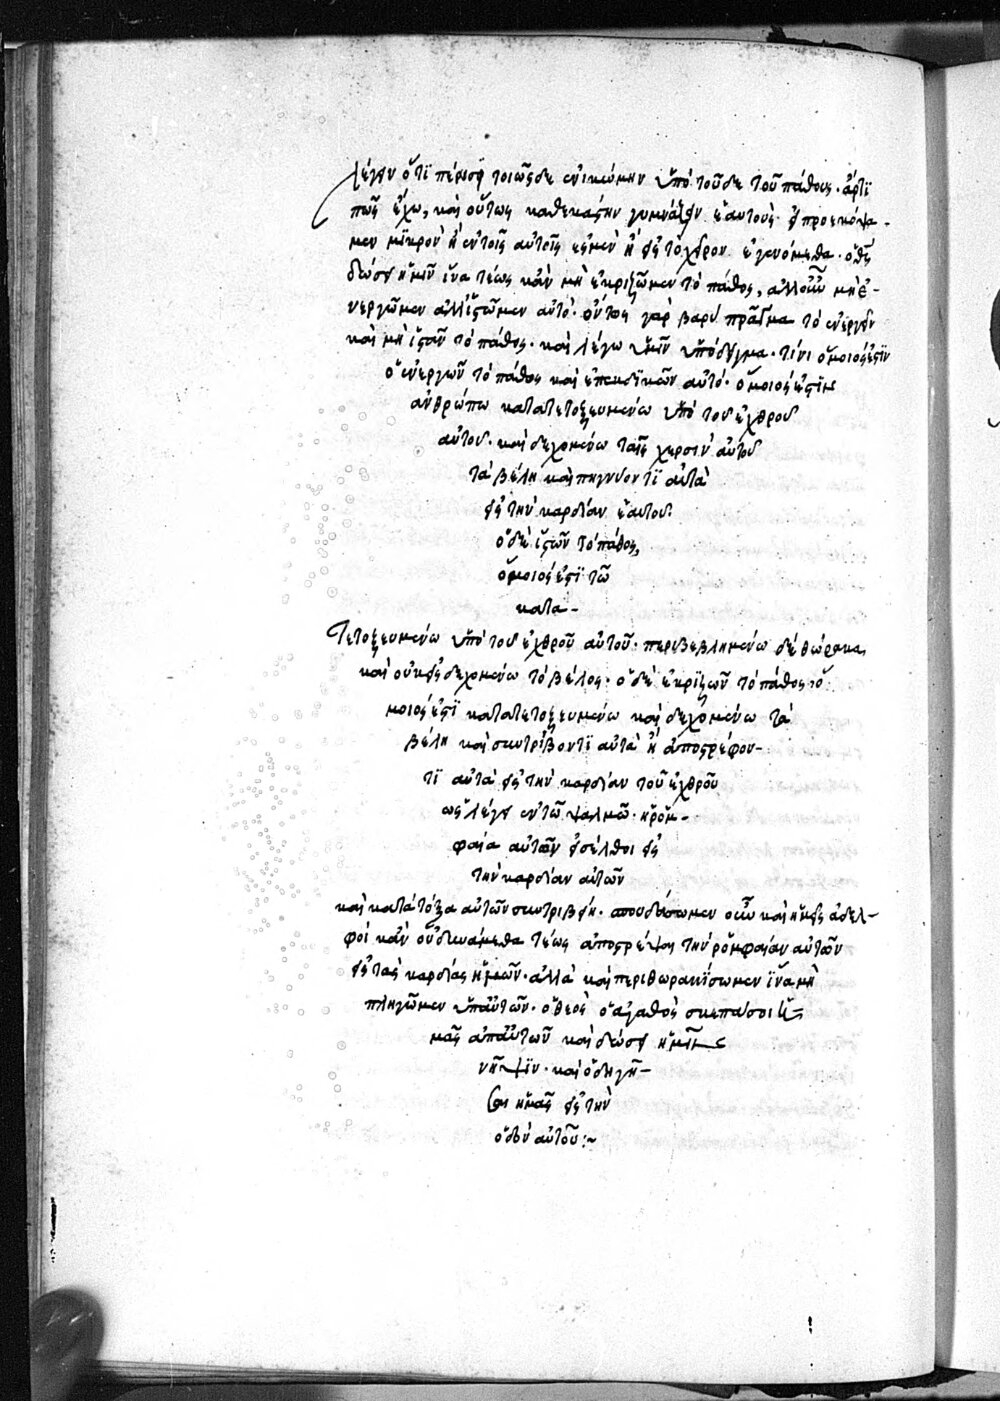 λέγειν ὅτι πέρισυ τοιῶσδε ἐνικώμην ὑπὸ τοῦδε τοῦ πάθους. ἄρτι
πῶς ἔχω, καὶ οὕτως καθεκάστην γυμνάζειν ἑαυτοὺς εἰ προεκόψα-
μεν μικρὸν ἢ ἐν τοῖς αὐτοῖς ἐσμὲν ἢ εἰς τὸ χεῖρον ἐγενόμεθα. ὁ θεὸς
δώσει ἡμῖν ἵνα τέως κἂν μὴ ἐκριζῶμεν τὸ πάθος, ἀλλ' οὖν μὴ ἐ-
νεργῶμεν ἀλλ' ἱστῶμεν αὐτό. ὄντως γὰρ βαρὺ πρᾶγμα τὸ ἐνεργεῖν
καὶ μὴ ἱστᾶν τὸ πάθος. καὶ λέγω ὑμῖν ὑπόδειγμα. τίνι ὅμοιός ἐστιν
ὁ ἐνεργῶν τὸ πάθος καὶ ἐπεκδικῶν αὐτό. ὅμοιός ἐστιν
ἀνθρώπω κατατετοξευμένω ὑπὸ τοῦ ἐχθροῦ
αὐτοῦ. καὶ δεχομένω ταῖς χερσὶν αὐτοῦ
τὰ βέλη καὶ πηγνύοντι αὐτὰ
εἰς τὴν καρδίαν ἑαυτοῦ.
ὁ δὲ ἱστῶν τὸ πάθος,
ὅμοιός ἐστι τῶ
κατα-
τετοξευμένω ὑπὸ τοῦ ἐχθροῦ αὐτοῦ. περιβεβλημένω δὲ θώρακα
καὶ οὐκ εἰσδεχομένω τὸ βέλος. ὁ δὲ ἐκριζῶν τὸ πάθος ὅ-
μοιός ἐστι κατατετοξευμένω καὶ δεχομένω τὰ
βέλη καὶ συντρίβοντι αὐτὰ ἢ ἀποστρέφον-
τι αὐτὰ εἰς τὴν καρδίαν τοῦ ἐχθροῦ
ὡς λέγει ἐν τῶ ψαλμῶ. ἡ ῥομ-
φαία αὐτῶν εἰσέλθοι εἰς
τὴν καρδίαν αὐτῶν
καὶ κατὰ τόξα αὐτῶν συντριβείη. σπουδάσωμεν οὖν καὶ ἡμεῖς ἀδελ-
φοὶ κἂν οὐ δυνάμεθα τέως ἀποστρέψαι τὴν ῥομφαίαν αὐτῶν
εἰς τὰς καρδίας ἡμῶν. ἀλλὰ καὶ περιθωρακίσωμεν ἵνα μὴ
πληγῶμεν ὑπ' αὐτῶν. ὁ θεὸς ὁ ἀγαθὸς σκεπάσοι ἡ-
μᾶς ἀπ' αὐτῶν καὶ δώσει ἡμῖν
νῆψιν. καὶ ὁδηγή-
σει ἡμᾶς εἰς τὴν
ὁδὸν αὐτοῦ :~